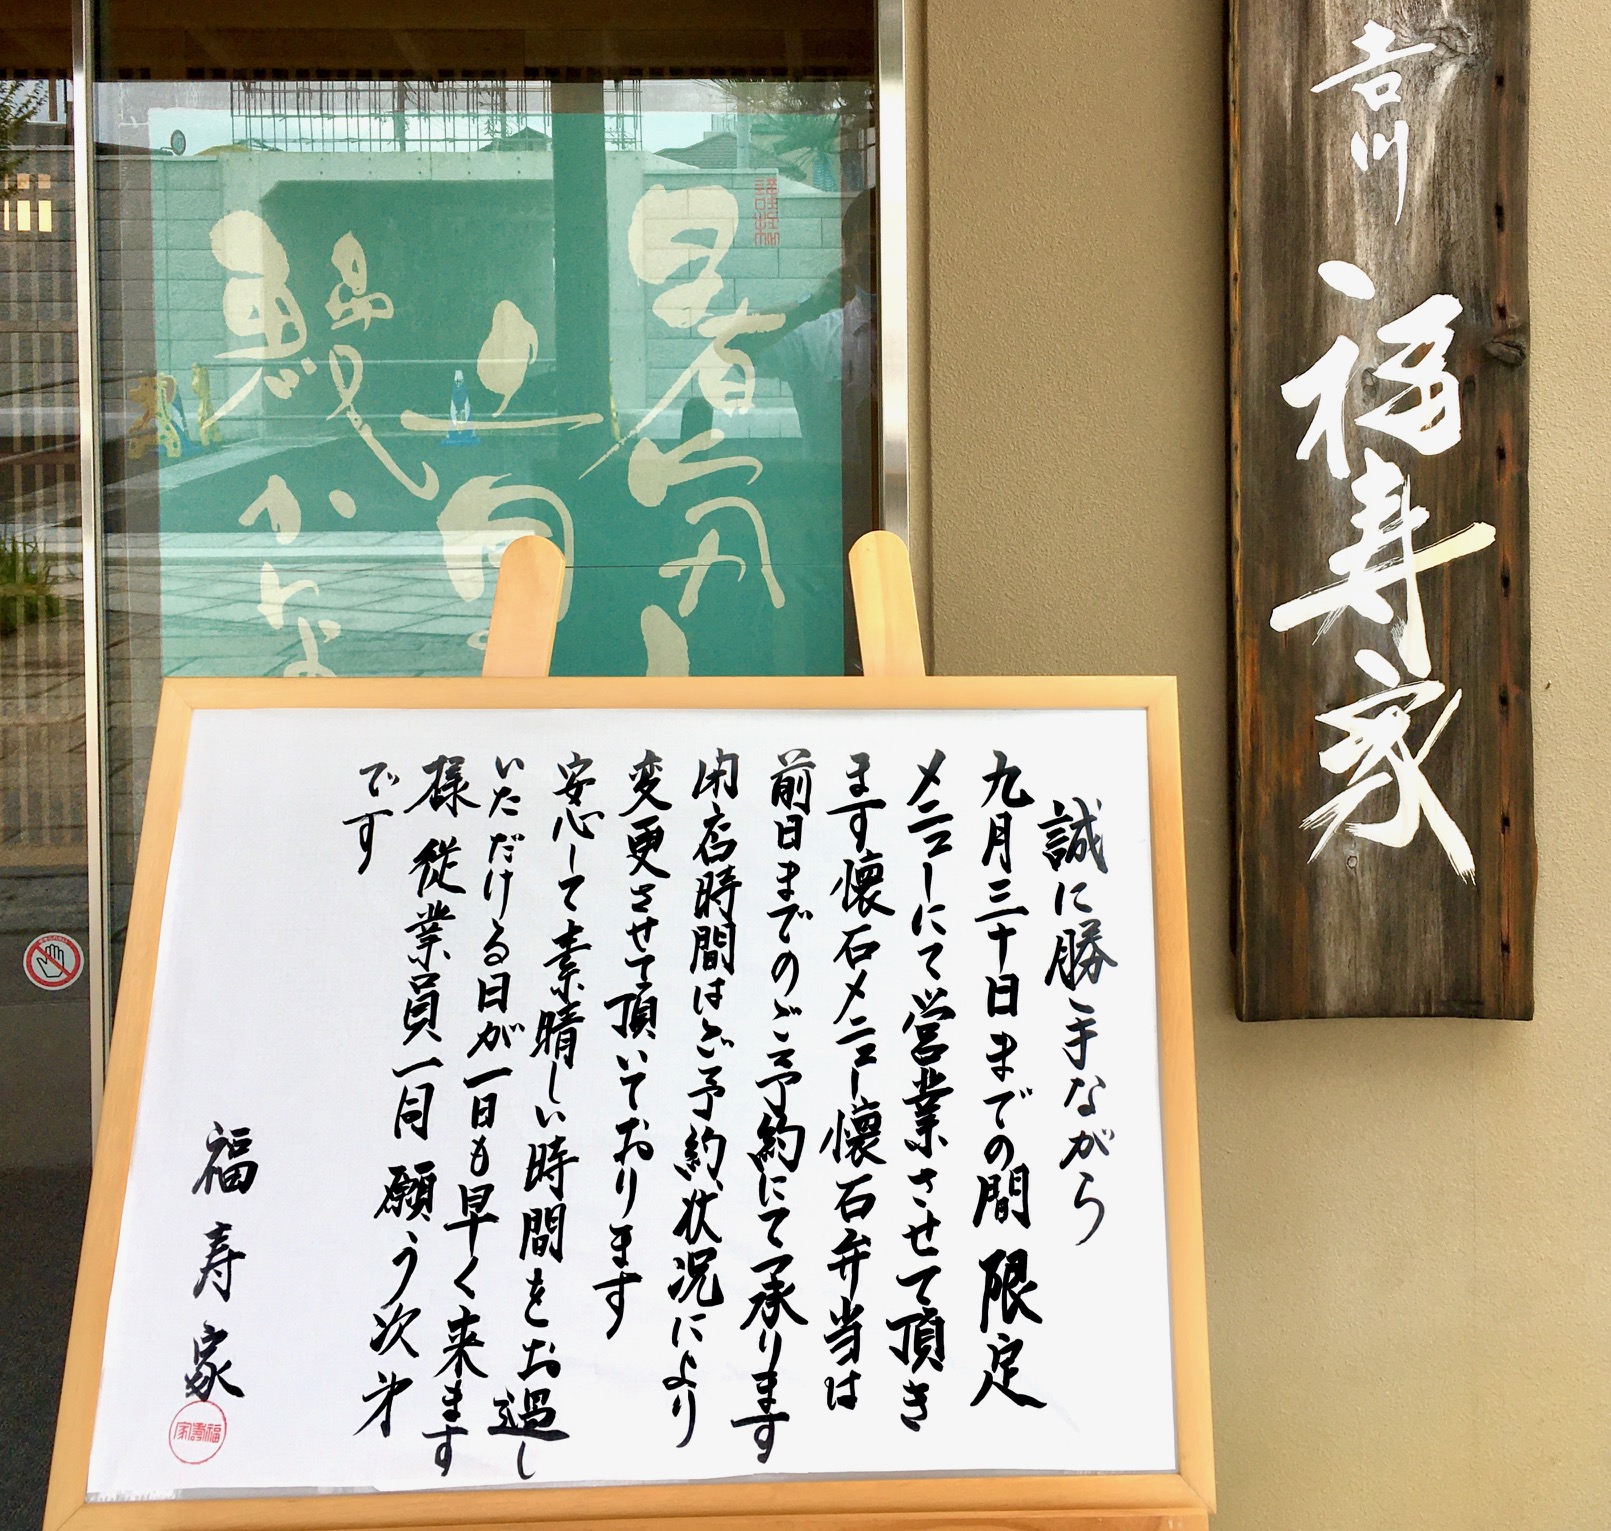 吉川
福寿家
誠に勝手ながら
九月三十日までの間 限定
メニューにて営業させて頂き
ます懐石メニュー懐石弁当は
前日までのご予約にて承ります
閉店時間はご予約状況により
変更させて頂いております
安心して素晴しい時間をお過し
いただける日が一日も早く来ます
様 従業員一同 願う次第
です
福寿家
福壽家